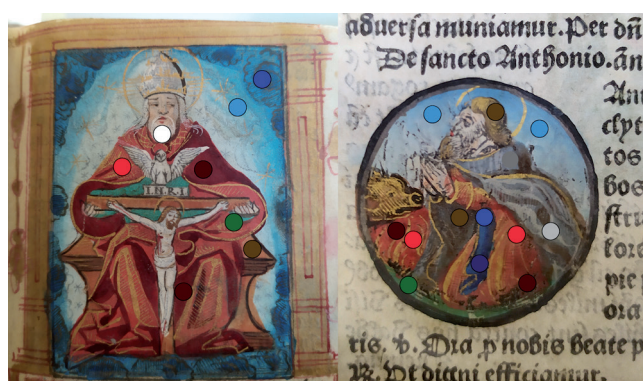 I.N.R.I
aduerſa muniamur. Per dñ
De ſancto Anthonio. añ
An
clyt
tos
boſ
ſtru
lore
pie p
ora
tis. ℣. Ora ꝓ nobis beate p
℟. Vt digni efficiamur.